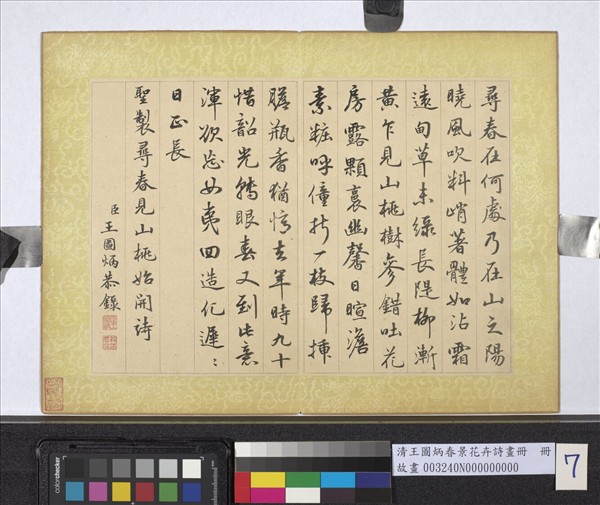 尋春在何處乃在山之陽
曉風吹料峭著體如沾霜
遠甸草未綠長隄柳漸
黃乍見山桃樹參錯吐花
房露顆裛幽馨日暄澹
素粧呼僮折一枝歸挿
膽瓶香猶憶去年時九十
惜韶光轉眼春又到此意
渾欲忘女夷回造化遲〻
日正長
聖製尋春見山桃始開詩
臣王圖炳恭錄
清王圖炳春景花卉詩畫冊 冊
故畫 003240N000000000
7
colorchecker